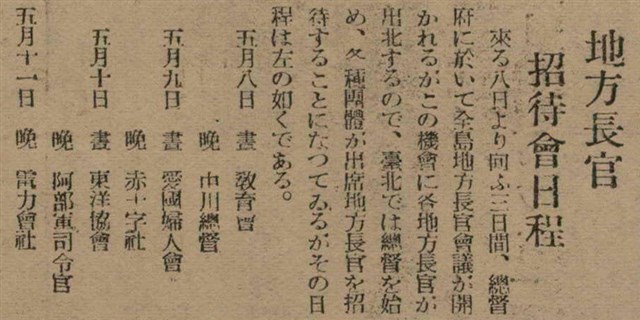 地方長官
招待會日程
來る八日より向ふ三日間、總督
府に於いて全島地方長官會議が開
かれるがこの機會に各地方長官が
出北するので、臺北では總督を始
め、各種團體が出席地方長官を招
待することになつてゐるがその日
程は左の如くである。
五月八日 晝 敎育會
晩 中川總督
五月九日 晝 愛國婦人會
晩 赤十字社
五月十日 晝 東洋協會
晩 阿部軍司令官
五月十一日 晩 電力會社